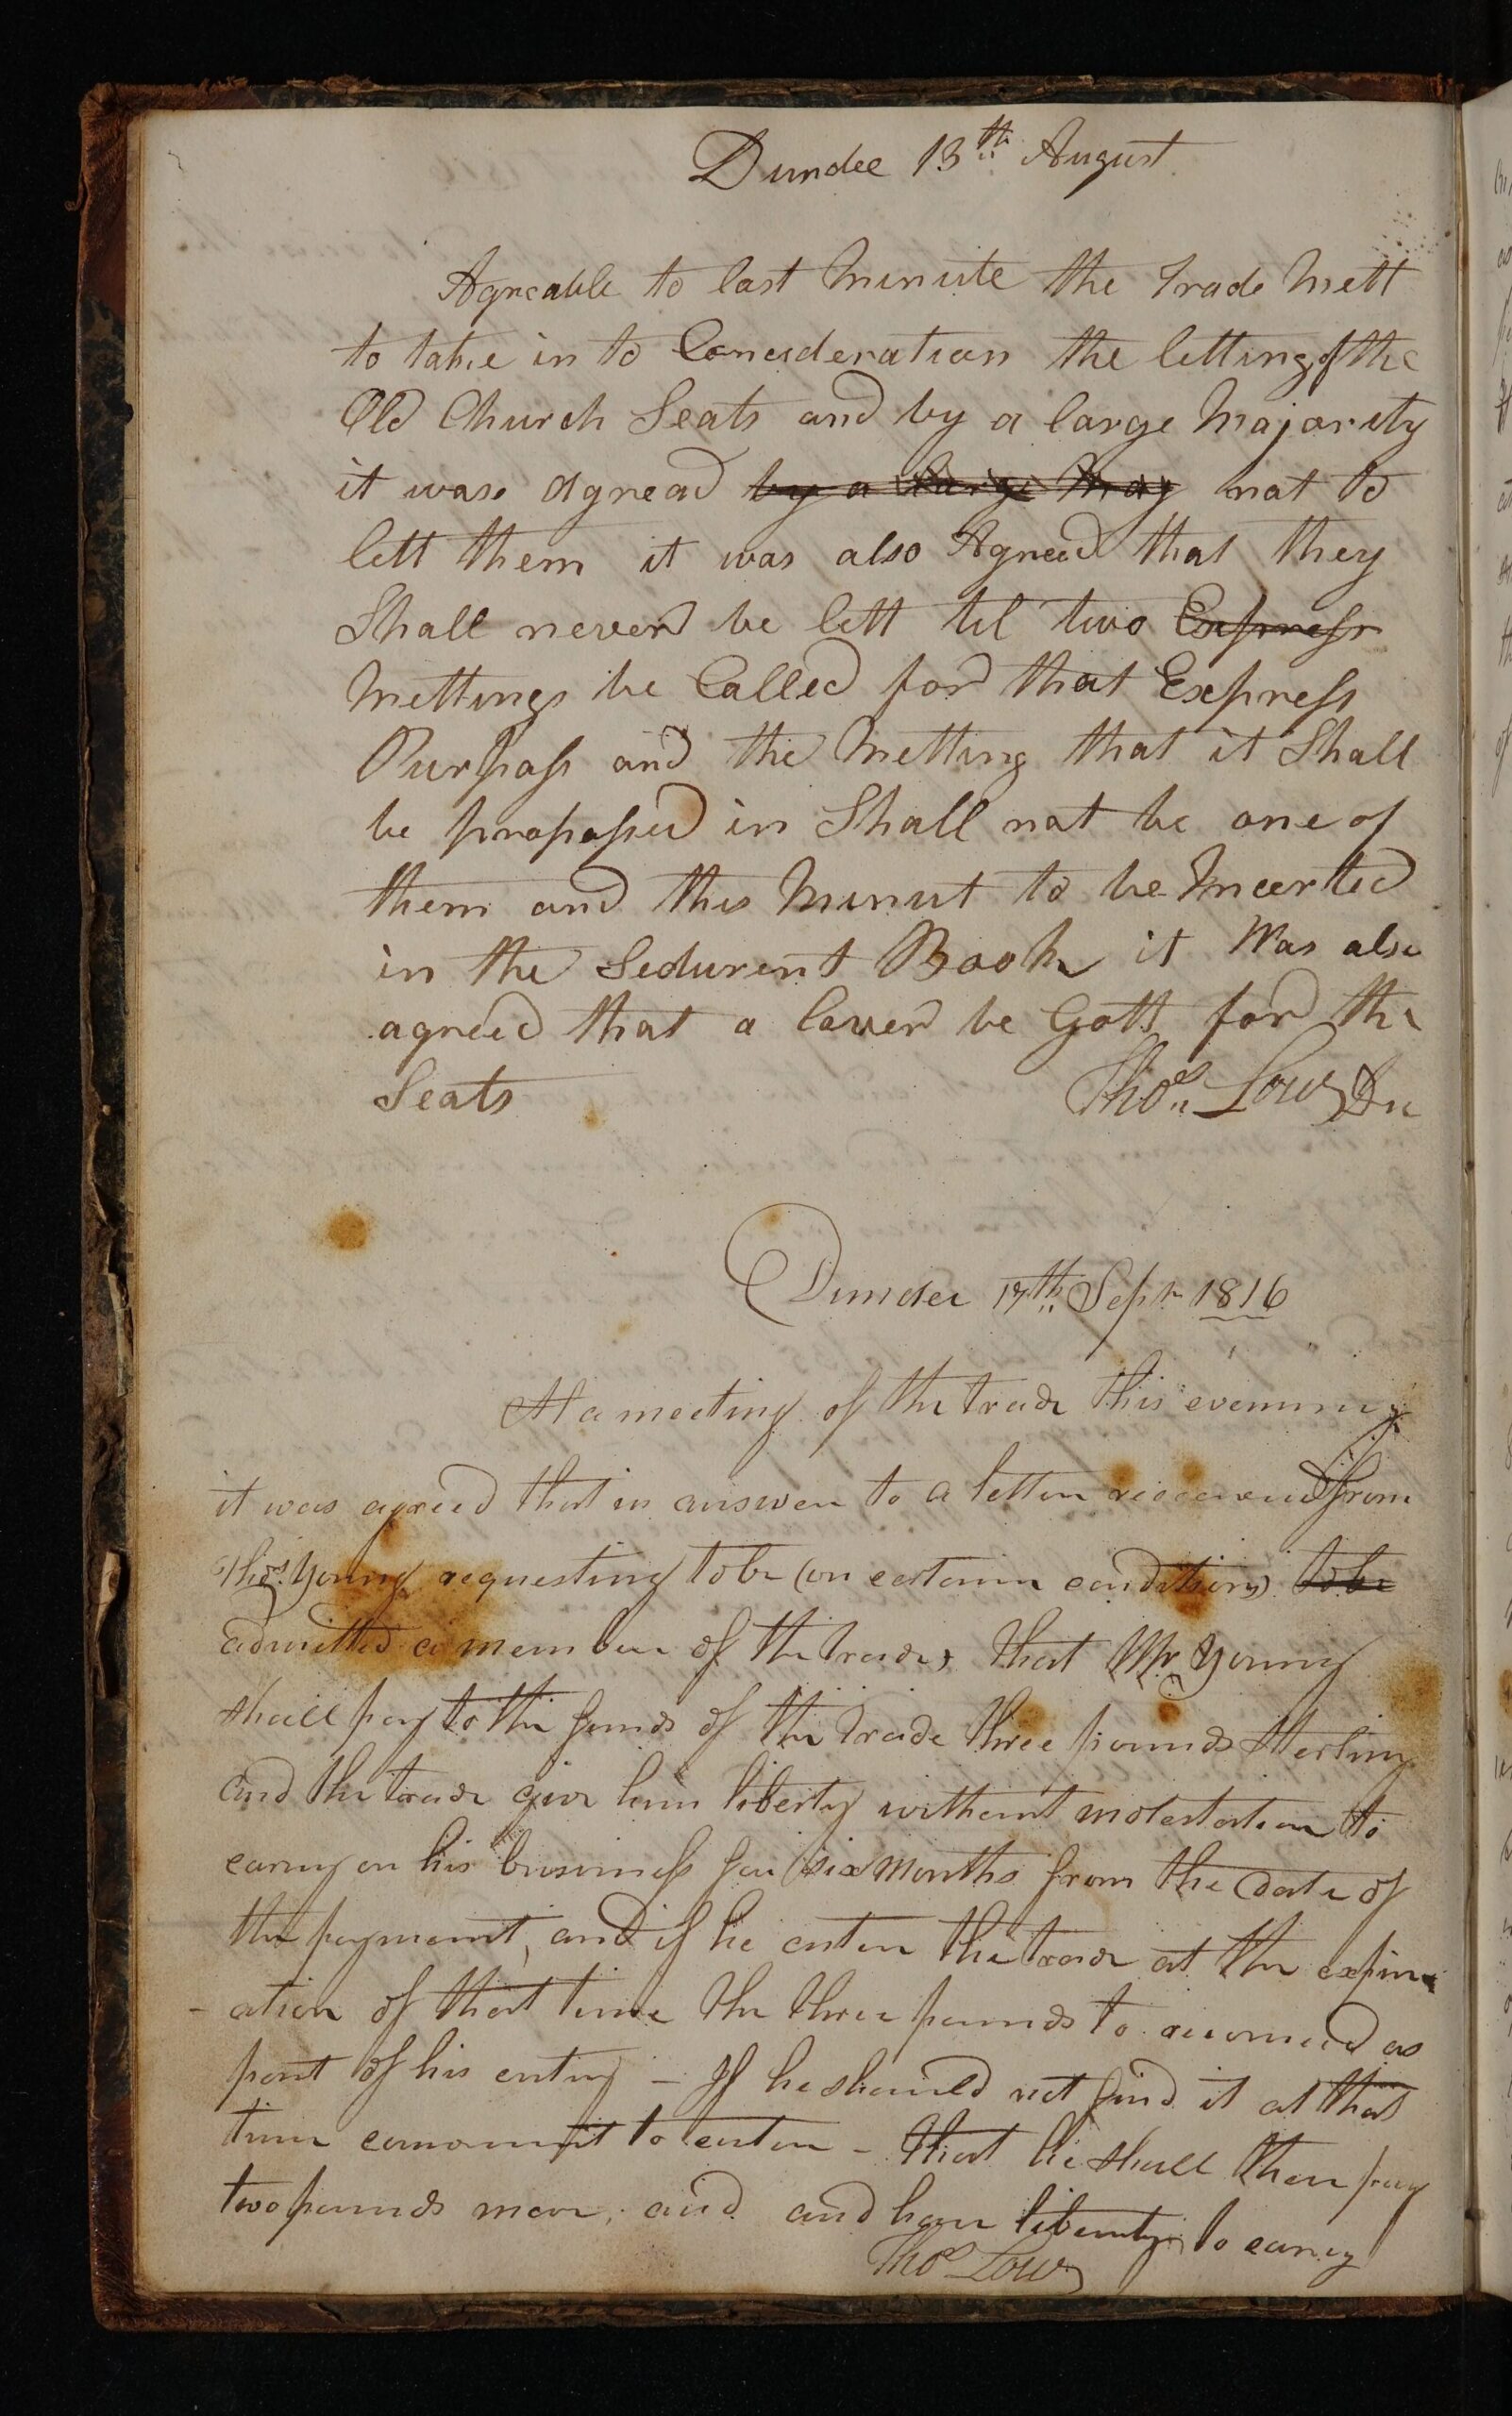 Dundee 13th August
Agreable to last Minute the Trade Mett
to take in to Concideration the letting of the
Old Church Seats and by a large Majority
it was Agread by a large Maj not to
lett them it was also Agreed that they
Shall never be lett til two Express
Mettings be Called for that Express
Purpass and the Metting that it Shall
be propossed in Shall not be one of
them and this Minut to be Incerted
in the Sedurent Book it Was also
agreed that a Cover be Gott for the
Seats Thos Low Dn
Dundee 17th Sepr 1816
At a meeting of the trade this evening
it was agreed that in answer to a letter received from
Thos Young requesting to be (on certain conditions) to be
admitted a member of the trade, that Mr Young
shall pay to the funds of the trade three pounds Sterling
and the trade give him liberty without molestation to
carry on his business for six months from the date of
the payment, and if he enter the trade at the expir
-ation of that time the three pounds to as
part of his entry - If he should not find it at that
time to enter - that he shall then pay
two pounds more, and and have liberty to carry
Thos Low